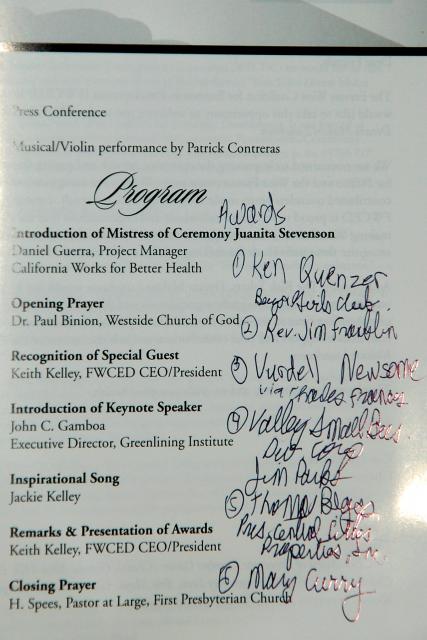 Press Conference
Musical/Violin performance by Patrick Contreras
Program
Awards
Introduction of Mistress of Ceremony Juanita Stevenson
Daniel Guerra, Project Manager
California Works for Better Health
① Ken Quenzer
Boys & Girls Club
Opening Prayer
Dr. Paul Binion, Westside Church of God
② Rev. Jim Franklin
Recognition of Special Guest
Keith Kelley, FWCED CEO/President
③ Vurdell Newsome
via Rhodes
Introduction of Keynote Speaker
John C. Gamboa
Executive Director, Greenlining Institute
④ Valley Small Bus.
Corp
Jim
Inspirational Song
Jackie Kelley
⑤ Thomas
Pres, Central
Properties, Inc.
Remarks & Presentation of Awards
Keith Kelley, FWCED CEO/President
⑥ Mary Curry
Closing Prayer
H. Spees, Pastor at Large, First Presbyterian Church